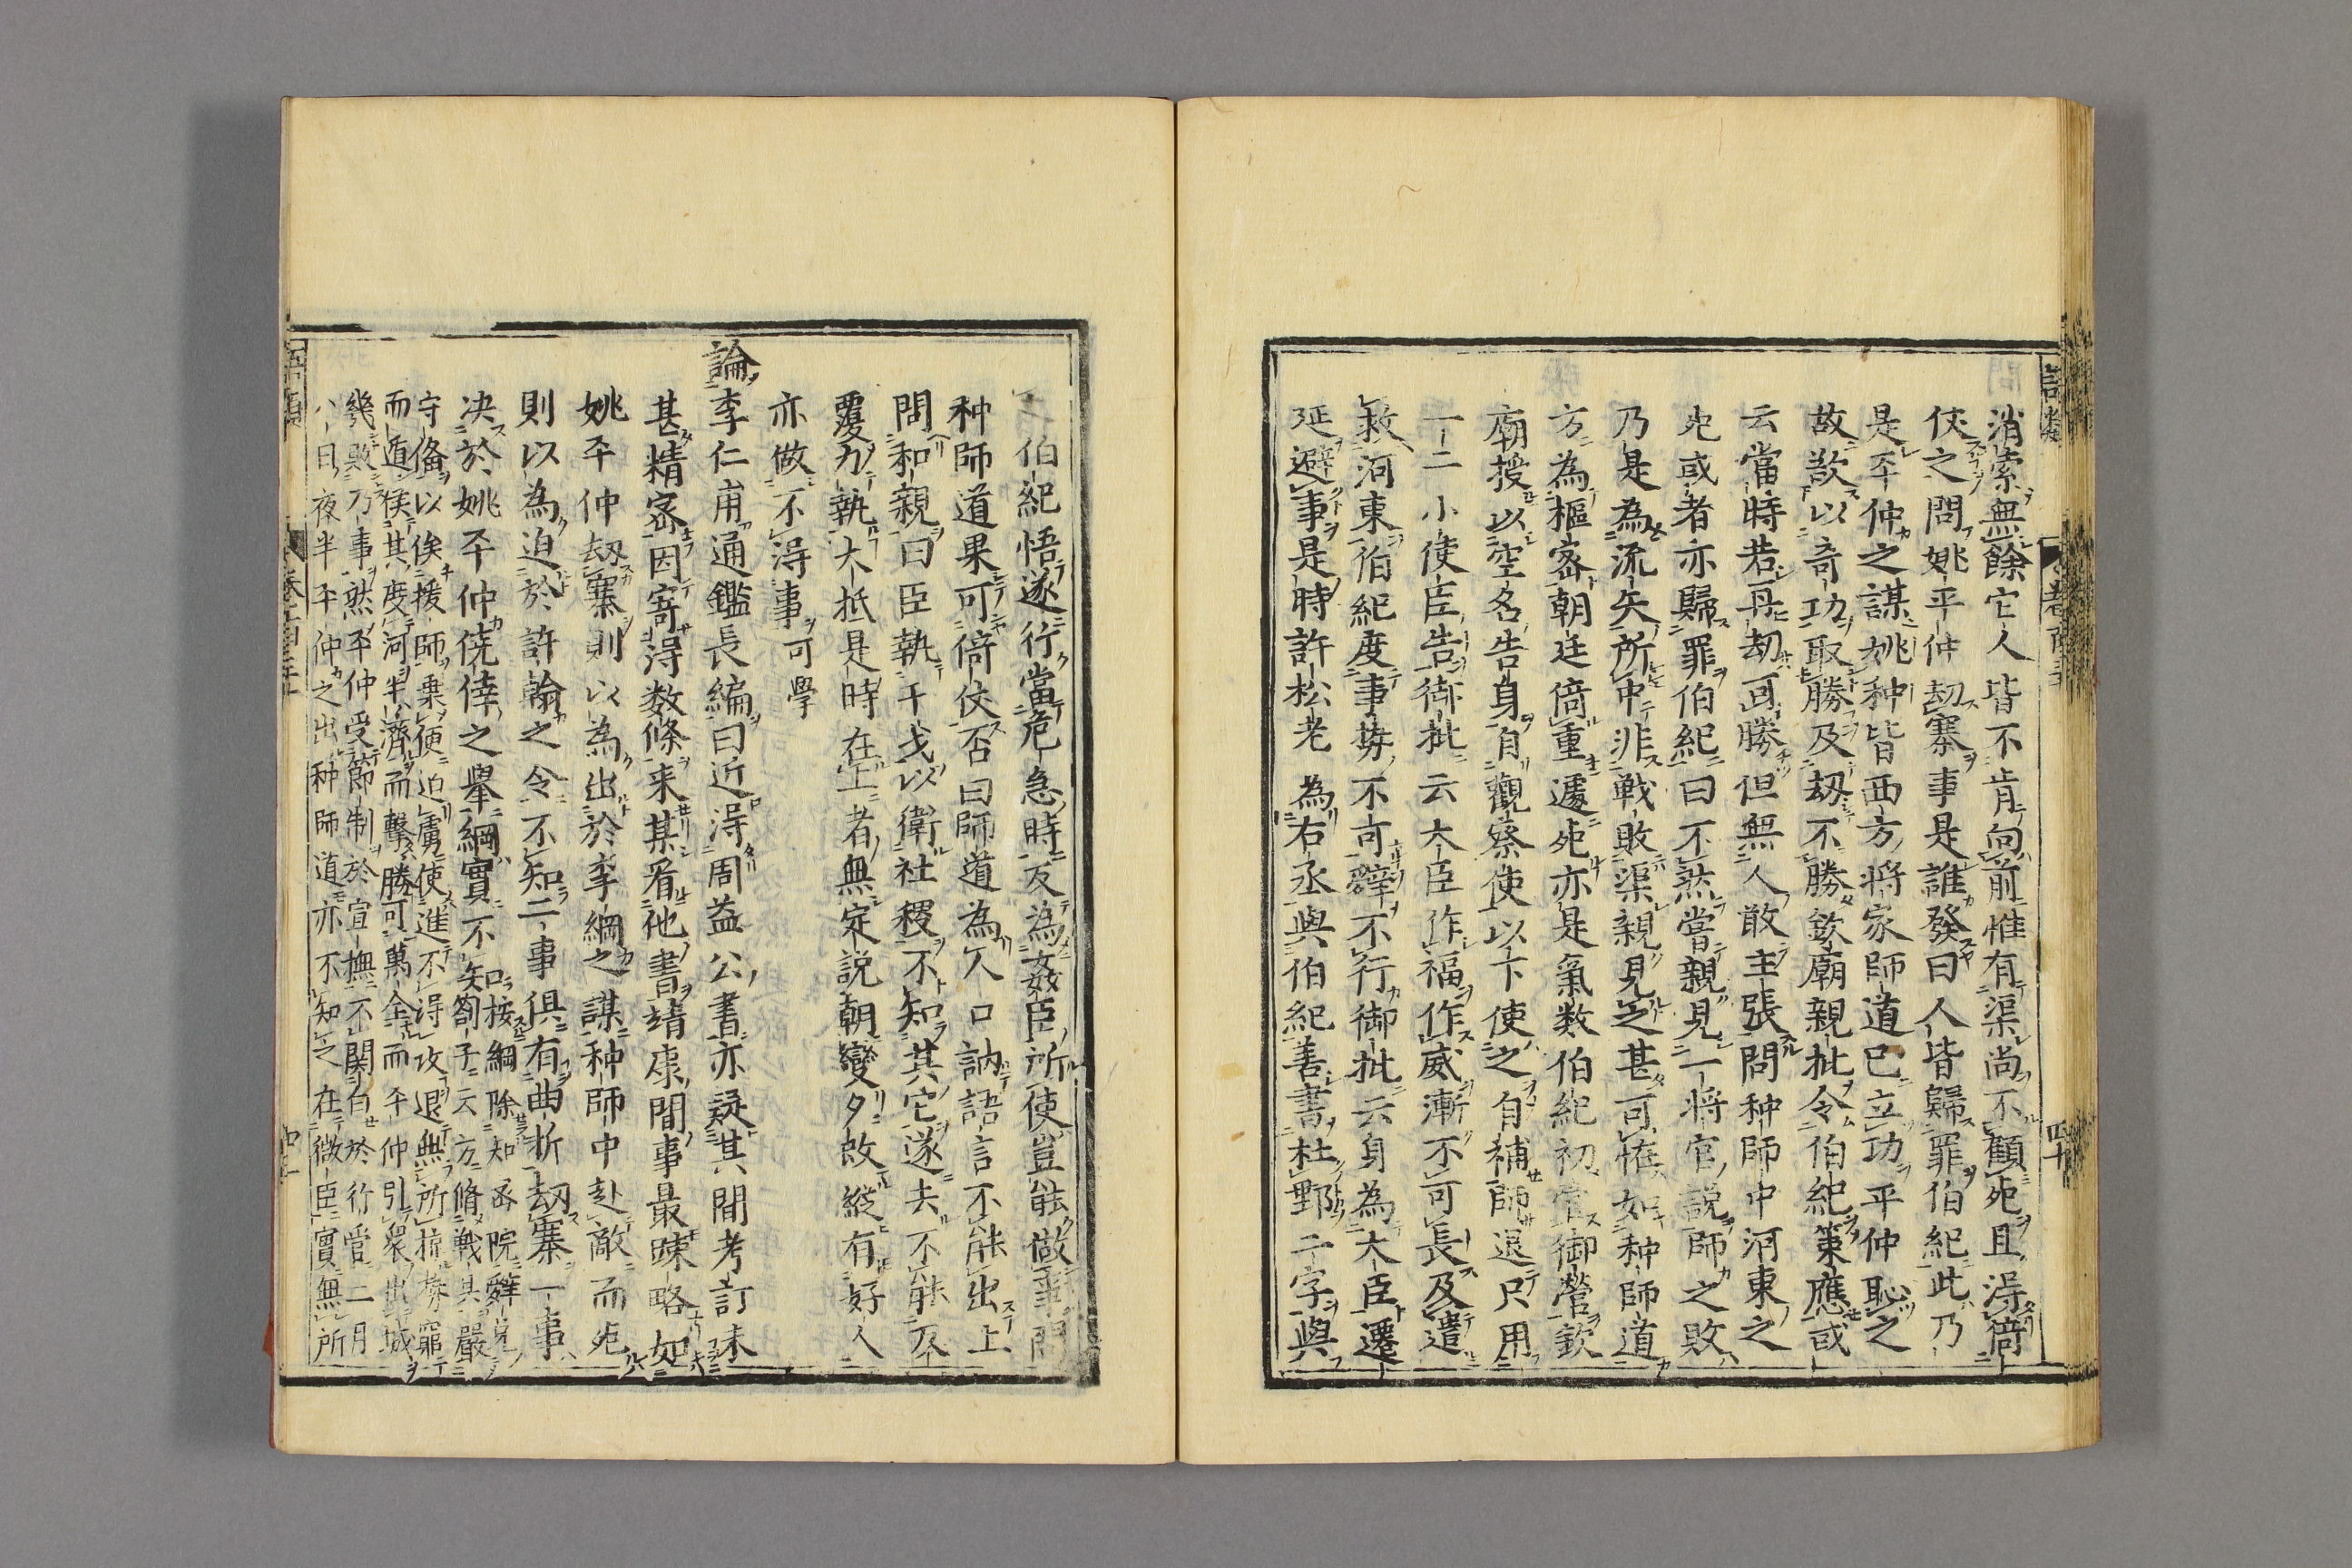 消索無餘它人皆不肯向前惟有渠尚不顧死且得倚
伏之問姚平仲刼寨事是誰發曰人皆歸罪伯紀此乃
是平仲之謀姚种皆西方將家師道已立功平仲恥之
故欲以奇功取勝及刼不勝欽廟親批令伯紀策應或
云當時若再刼可勝但無人敢主張問种師中河東之
死或者亦歸罪伯紀曰不然嘗親見一將官說師之敗
乃是為流矢所中非戰敗渠親見之甚可恠如种師道
方為樞密朝廷倚重遽死亦是氣数伯紀初管御營欽
廟授以空名告身自觀察使以下使之自補師退只用
一二小使臣告御批云大臣作福作威漸不可長及遣
救河東伯紀度事勢不可辭不行御批云身為大臣遷
延避事是時許松老為右丞與伯紀善書杜郵二字與
之伯紀悟遂行當危急時反為姦臣所使豈能做事問
种師道果可倚伏否曰師道為人口訥語言不能出上
問和親曰臣執干戈以衛社稷不知其它遂去不能反
覆力執大抵是時在上者無定說朝變夕改縱有好人
亦做不得事可學
論李仁甫通鑑長編曰近得周益公書亦疑其間考訂未
甚精密因寄得数條来某看他書靖康間事最踈略如
姚平仲刼寨則以為出於李綱之謀种師中赴敵而死
則以為迫於許翰之令不知二事俱有曲折刼寨一事
决於姚平仲僥倖之舉綱實不知
按綱除知密院辭免劄子云方脩戰具嚴
守俻以俟援師乗便迫虜使進不得攻退無所掠勢窮
而遁俟其度河半濟而擊勝可萬全而平仲引衆出城
幾敗乃事然平仲受節制於宣撫不関白於行營二月
八日夜半平仲之出种師道亦不知之在微臣實無所
語類
卷百三十
四十
語類
卷百三十
四十一